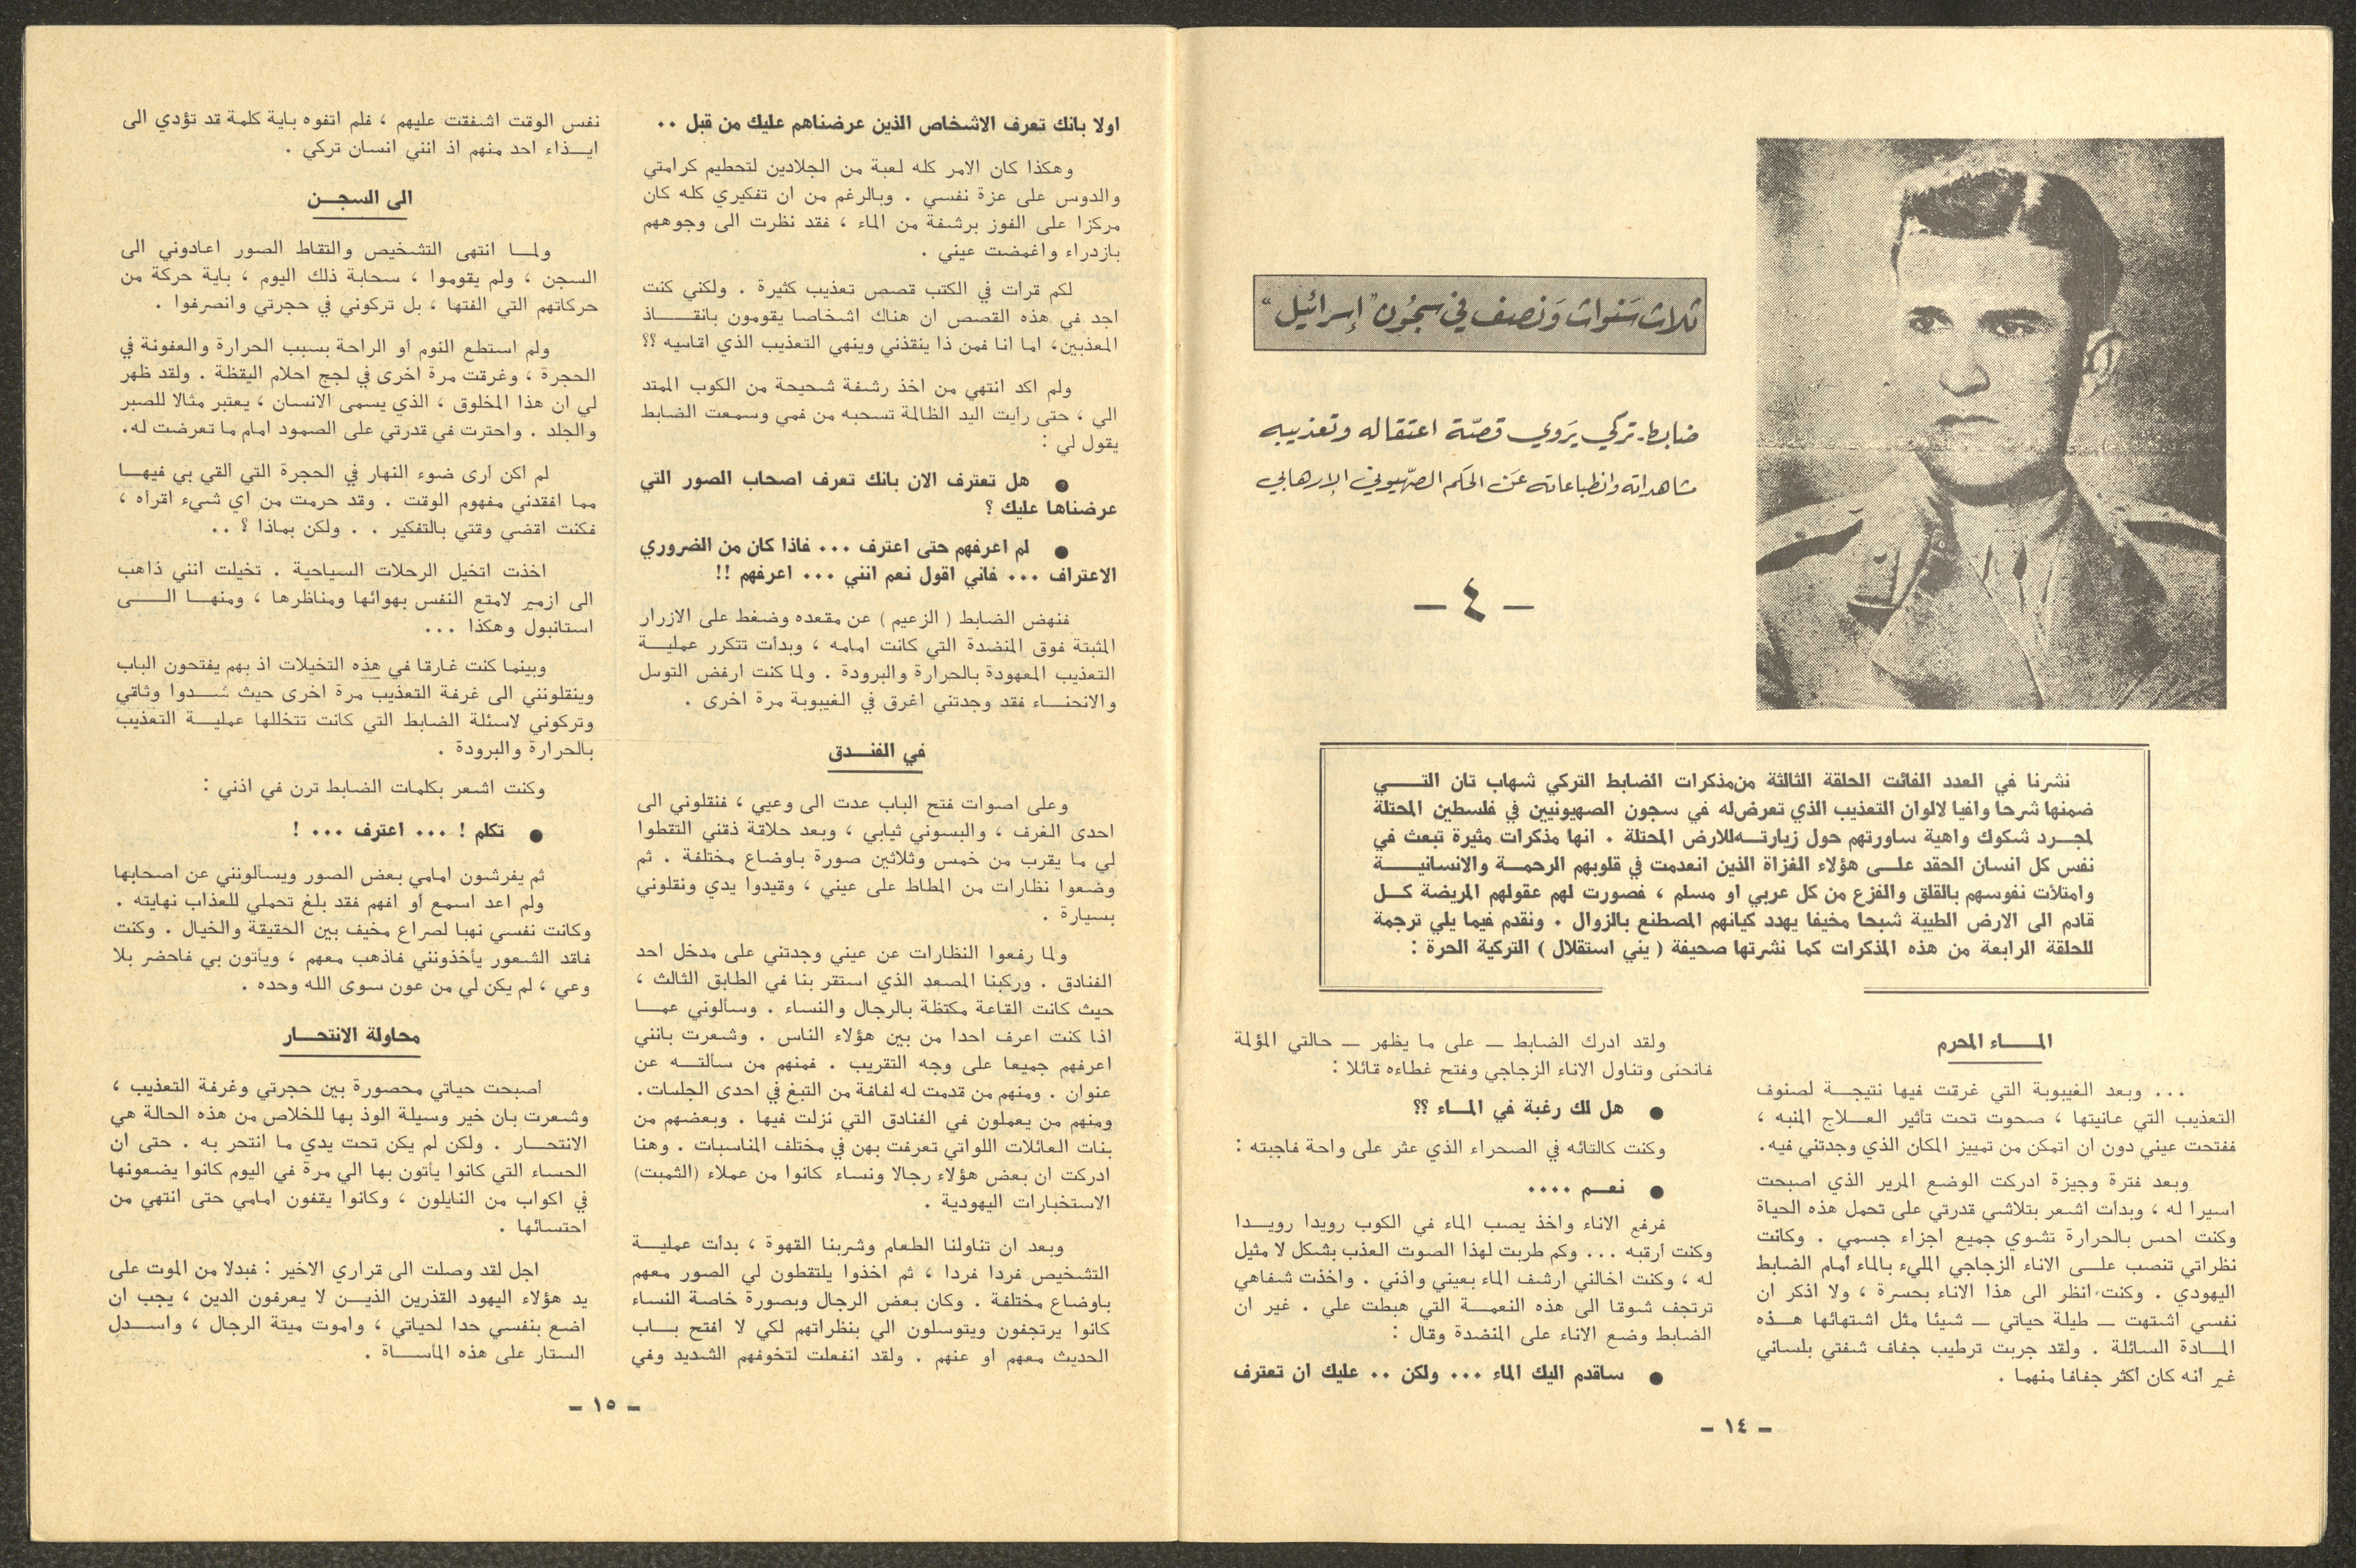 ثلاث سَنوات وَنصف في سجُون "إسرائيل"
ضابط تركي يَروي قصّة اعتقاله وتعذيبه
مشاهداته وانطباعاته عَن الحكم الصّهيوني الإرهابي
– ٤ –
نشرنا في العدد الفائت الحلقة الثالثة من مذكرات الضابط التركي شهاب تان التـــي
ضمنها شرحا وافيا لالوان التعذيب الذي تعرض له في سجون الصهيونيين في فلسطين المحتلة
لمجــرد شكوك واهية ساورتهم حول زيارتــه للارض المحتلة . انها مذكرات مثيرة تبعث في
نفس كل انسان الحقد علــى هؤلاء الغزاة الذين انعدمت في قلوبهم الرحمــة والانسانيـــة
وامتلأت نفوسهم بالقلق والفزع من كل عربي او مسلم ، فصورت لهم عقولهم المريضة كــل
قادم الى الارض الطيبة شبحا مخيفا يهدد كيانهم المصطنع بالزوال . ونقدم فيما يلي ترجمة
للحلقة الرابعة من هذه المذكرات كما نشرتها صحيفة ( يني استقلال ) التركية الحرة :
المــــاء المحرم
... وبعد الغيبوبة التي غرقت فيها نتيجــة لصنوف
التعذيب التي عانيتها ، صحوت تحت تأثير العـــلاج المنبه ،
ففتحت عيني دون ان اتمكن من تمييز المكان الذي وجدتني فيه.
وبعد فترة وجيزة ادركت الوضع المرير الذي اصبحت
اسيرا له ، وبدأت اشعر بتلاشي قدرتي على تحمل هذه الحياة
وكنت احس بالحرارة تشوي جميع اجزاء جسمي . وكانت
نظراتي تنصب علـــى الاناء الزجاجي المليء بالماء أمام الضابط
اليهودي . وكنت انظر الى هذا الاناء بحسرة ، ولا اذكر ان
نفسي اشتهت — طيلة حياتي — شيئا مثل اشتهائها هـــذه
المـــادة السائلة . ولقد جربت ترطيب جفاف شفتي بلساني
غير انه كان اكثر جفافا منهما .
ولقد ادرك الضابط — على ما يظهر — حالتي المؤلمة
فانحنى وتناول الاناء الزجاجي وفتح غطاءه قائلا :
● هل لك رغبة في المــاء ؟؟
وكنت كالتائه في الصحراء الذي عثر على واحة فاجبته :
● نعـــم ....
فرفع الاناء واخذ يصب الماء في الكوب رويدا رويـــدا
وكنت أرقبه ... وكم طربت لهذا الصوت العذب بشكل لا مثيل
له ، وكنت اخالني ارشف الماء بعيني واذني . واخذت شفاهي
ترتجف شوقا الى هذه النعمـــة التي هبطت علي . غير ان
الضابط وضع الاناء على المنضدة وقال :
● ساقدم اليك الماء ... ولكن .. عليك ان تعترف
– ١٤ –
اولا بانك تعرف الاشخاص الذين عرضناهم عليك من قبل ..
وهكذا كان الامر كله لعبة من الجلادين لتحطيم كرامتي
والدوس على عزة نفسي . وبالرغم من ان تفكيري كله كان
مركزا على الفوز برشفة من الماء ، فقد نظرت الى وجوههم
بازدراء واغمضت عيني .
لكم قرأت في الكتب قصص تعذيب كثيرة . ولكني كنت
اجد في هذه القصص ان هناك اشخاصا يقومون بانقـــــاذ
المعذبين، اما انا فمن ذا ينقذني وينهي التعذيب الذي اقاسيه ؟؟
ولم اكد انتهي من اخذ رشفة شحيحة من الكوب الممتد
الي ، حتى رأيت اليد الظالمة تسحبه من فمي وسمعت الضابط
يقول لي :
● هل تعترف الان بانك تعرف اصحاب الصور التي
عرضناها عليك ؟
● لم اعرفهم حتى اعترف ... فاذا كان من الضروري
الاعتراف ... فاني اقول نعم انني ... اعرفهم !!
فنهض الضابط ( الزعيم ) عن مقعده وضغط على الازرار
المثبتة فوق المنضدة التي كانت امامه ، وبدأت تتكرر عمليـــة
التعذيب المعهودة بالحرارة والبرودة . ولما كنت ارفض التوسل
والانحنـــاء فقد وجدتني اغرق في الغيبوبة مرة اخرى .
في الفنـــدق
وعلى اصوات فتح الباب عدت الى وعيي ، فنقلوني الى
احدى الغرف ، والبسوني ثيابي ، وبعد حلاقة ذقني التقطوا
لي ما يقرب من خمس وثلاثين صورة باوضاع مختلفة . ثم
وضعوا نظارات من المطاط على عيني ، وقيدوا يدي ونقلوني
بسيارة .
ولما رفعوا النظارات عن عيني وجدتني على مدخل احد
الفنادق . وركبنا المصعد الذي استقر بنا في الطابق الثالث ،
حيث كانت القاعة مكتظة بالرجال والنساء . وسألوني عمـــا
اذا كنت اعرف احدا من بين هؤلاء الناس . وشعرت بانني
اعرفهم جميعا على وجه التقريب . فمنهم من سألتـــه عن
عنوان . ومنهم من قدمت له لفافة من التبغ في احدى الجلسات.
ومنهم من يعملون في الفنادق التي نزلت فيها . وبعضهم من
بنات العائلات اللواتي تعرفت بهن في مختلف المناسبات . وهنا
ادركت ان بعض هؤلاء رجالا ونساء كانوا من عملاء (الثمبت)
الاستخبارات اليهودية .
وبعد ان تناولنا الطعام وشربنا القهوة ، بدأت عمليـــة
التشخيص فردا فردا ، ثم اخذوا يلتقطون لي الصور معهم
باوضاع مختلفة . وكان بعض الرجال وبصورة خاصة النساء
كانوا يرتجفون ويتوسلون الي بنظراتهم لكي لا افتح بـــاب
الحديث معهم او عنهم . ولقد انفعلت لتخوفهم الشديد وفي
نفس الوقت اشفقت عليهم ، فلم اتفوه باية كلمة قد تؤدي الى
ايـــذاء احد منهم اذ انني انسان تركي .
الى السجـــن
ولمـــا انتهى التشخيص والتقاط الصور اعادوني الى
السجن ، ولم يقوموا ، سحابة ذلك اليوم ، باية حركة من
حركاتهم التي الفتها ، بل تركوني في حجرتي وانصرفوا .
ولم استطع النوم أو الراحة بسبب الحرارة والعفونة في
الحجرة ، وغرقت مرة اخرى في لجج احلام اليقظة . ولقد ظهر
لي ان هذا المخلوق ، الذي يسمى الانسان ، يعتبر مثالا للصبر
والجلد . واحترت في قدرتي على الصمود امام ما تعرضت له.
لم اكن ارى ضوء النهار في الحجرة التي القي بي فيهـــا
مما افقدني مفهوم الوقت . وقد حرمت من اي شيء اقرأه ،
فكنت اقضي وقتي بالتفكير . . ولكن بماذا ؟ ..
اخذت اتخيل الرحلات السياحية . تخيلت انني ذاهب
الى ازمير لامتع النفس بهوائها ومناظرها ، ومنهـــا الـــى
استانبول وهكذا ...
وبينما كنت غارقا في هذه التخيلات اذ بهم يفتحون الباب
وينقلونني الى غرفة التعذيب مرة اخرى حيث شـــدوا وثاقي
وتركوني لاسئلة الضابط التي كانت تتخللها عمليـــة التعذيب
بالحرارة والبرودة .
وكنت اشعر بكلمات الضابط ترن في اذني :
● تكلم ! ... اعترف ... !
ثم يفرشون امامي بعض الصور ويسألونني عن اصحابها
ولم اعد اسمع أو افهم فقد بلغ تحملي للعذاب نهايته .
وكانت نفسي نهبا لصراع مخيف بين الحقيقة والخيال . وكنت
فاقد الشعور يأخذونني فاذهب معهم ، ويأتون بي فاحضر بلا
وعي ، لم يكن لي من عون سوى الله وحده .
محاولة الانتحـــار
أصبحت حياتي محصورة بين حجرتي وغرفة التعذيب ،
وشعرت بان خير وسيلة الوذ بها للخلاص من هذه الحالة هي
الانتحـــار . ولكن لم يكن تحت يدي ما انتحر به . حتى ان
الحساء التي كانوا يأتون بها الي مرة في اليوم كانوا يضعونها
في اكواب من النايلون ، وكانوا يقفون امامي حتى انتهي من
احتسائها .
اجل لقد وصلت الى قراري الاخير : فبدلا من الموت على
يد هؤلاء اليهود القذرين الذيـــن لا يعرفون الدين ، يجب ان
اضع بنفسي حدا لحياتي ، واموت ميتة الرجال ، واســـدل
الستار على هذه المأســـاة .
– ١٥ –